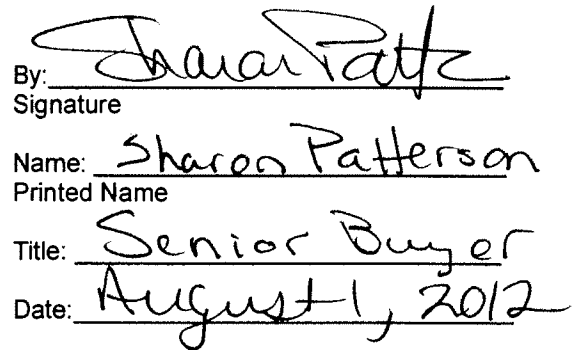 By: Sharon Patt
Signature
Name: Sharon Patterson
Printed Name
Title: Senior Buyer
Date: August 1, 2012